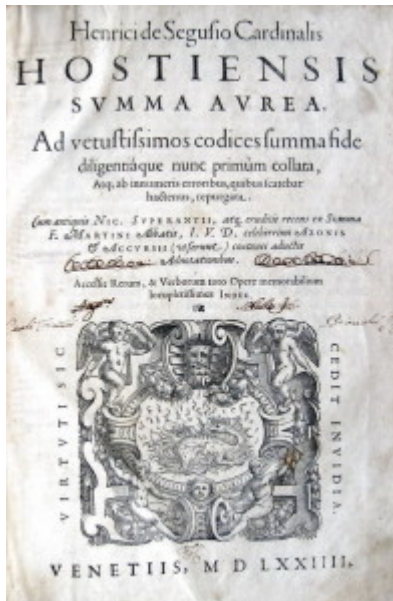 Henrici de Segusio Cardinalis
HOSTIENSIS
SVMMA AVREA.
Ad vetustissimos codices summa fide
diligentiáque nunc primùm collata,
Atq. ab innumeris erroribus, quibus scatebat
hactenus, repurgata.
Cum antiquis NIC. SVPERANTII, atq. eruditis recens ex Summa
F. MARTINI Abbatis, I. V. D. celeberrimi AZONIS
& ACCVRSII (vt ferunt) coaetanei adiectis
Adnotationibus.
Accessit Rerum, & Verborum toto Opere memorabilium
locupletissimus INDEX.
VIRTVTI SIC
CEDIT INVIDIA.
VENETIIS, M D LXXIIII,